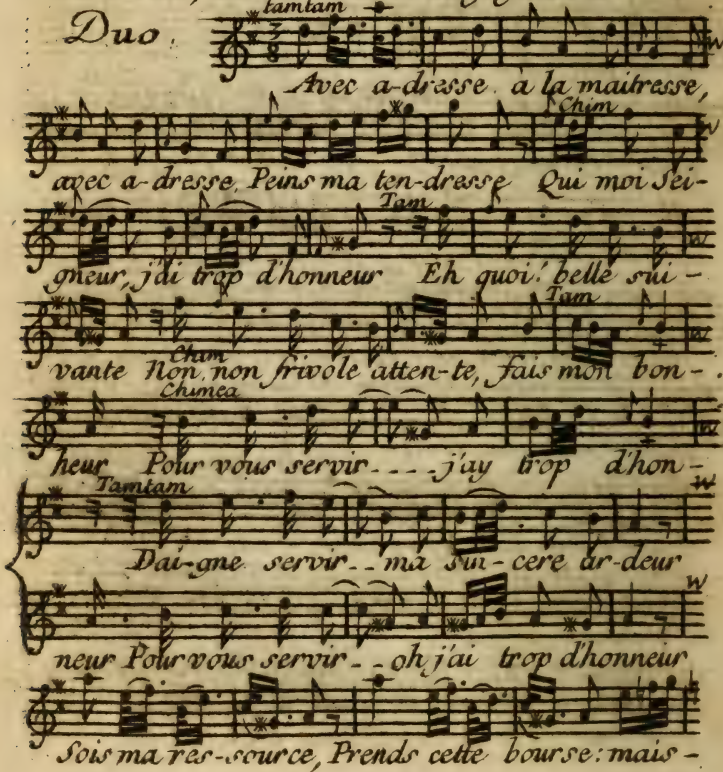 tamtam
Duo.
3
8
Avec a-dresse à la maitresse,
Chim
avec a-dresse, Peins ma ten-dresse Qui moi Sei-
Tam
gneur, j'ai trop d'honneur Eh quoi! belle sui-
Tam
Chim
vante Non, non frivole atten-te, fais mon bon-
Chimea
heur Pour vous servir.... j'ay trop d'hon-
Tamtam
Dai-gne servir.. ma sin-cere ar-deur
neur Pour vous servir.. oh j'ai trop d'honneur
Sois ma res-source, Prends cette bourse: mais-